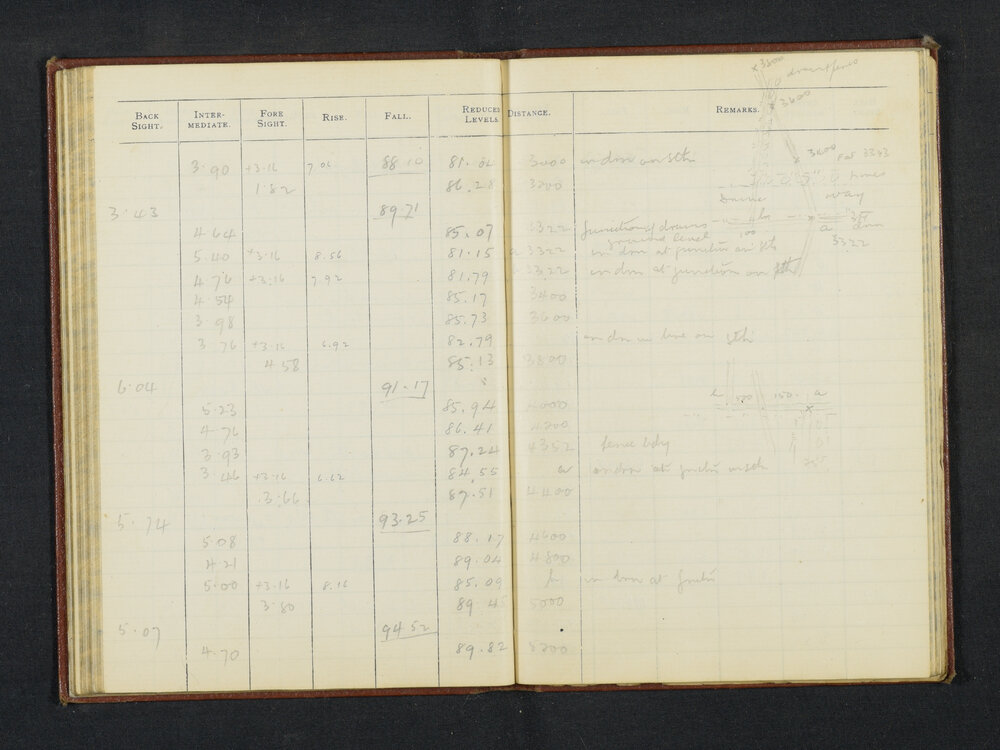 BACK SIGHT. INTER-MEDIATE. FORE SIGHT. RISE. FALL. REDUCED LEVELS. DISTANCE. REMARKS.
3.90 +3.16 7.06 88.10 81.04 3000
1.82 86.28 3200
3.43 89.71
4.64 85.07 3322 junction of drains
ground level
5.40 +3.16 8.56 81.15 a 3322 in drn at junction on sth
4.76 +3.16 7.92 81.79 3322 in drn at junction on sth
4.54 85.17 3400
3.98 85.73 3600
3.76 +3.16 6.92 82.79 in drn in line on sth
4.58 85.13 3800
6.04 91.17
5.23 85.94 4000
4.76 86.41 4200
3.93 87.24 4352 fence bdy
3.46 +3.16 6.62 84.55 a
3.66 87.51 4400
5.74 93.25
5.08 88.17 4600
4.21 89.04 4800
5.00 +3.16 8.16 85.09 b in drn at
3.80 89.45 5000
5.07 94.52
4.70 89.82 5200
x 3800
x 3600
x 3400
way
b
100
a
3322
150
a
x